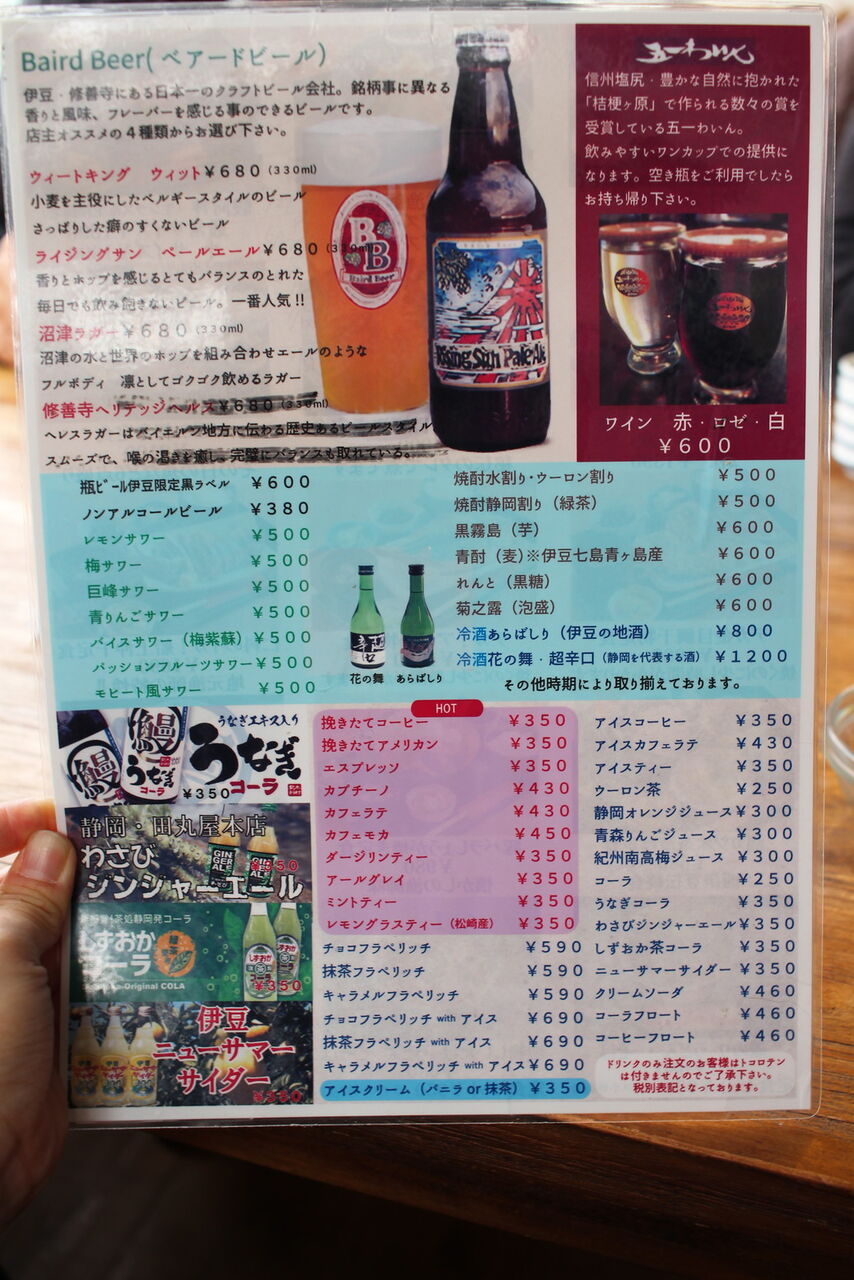 Baird Beer(ベアードビール)
伊豆・修善寺にある日本一のクラフトビール会社。銘柄事に異なる
香りと風味、フレーバーを感じる事のできるビールです。
店主オススメの4種類からお選び下さい。
ウィートキング ウィット¥680(330ml)
小麦を主役にしたベルギースタイルのビール
さっぱりした癖のすくないビール
ライジングサン ペールエール¥680(330ml)
香りとホップを感じるとてもバランスのとれた
毎日でも飲み飽きないビール。一番人気!!
沼津ラガー¥680(330ml)
沼津の水と世界のホップを組み合わせエールのような
フルボディ 凛としてゴクゴク飲めるラガー
修善寺ヘリテッジヘルス¥680(330ml)
ヘレスラガーはバイエルン地方に伝わる歴史あるビールスタイル
スムーズで、喉の渇きを癒し、完璧にバランスも取れている。
BB
Baird Beer
Rising Sun Pale Ale
五一わいん
信州塩尻・豊かな自然に抱かれた
「桔梗ヶ原」で作られる数々の賞を
受賞している五一わいん。
飲みやすいワンカップでの提供に
なります。空き瓶をご利用でしたら
お持ち帰り下さい。
ワイン 赤・ロゼ・白
¥600
瓶ビール伊豆限定黒ラベル ¥600
ノンアルコールビール ¥380
レモンサワー ¥500
梅サワー ¥500
巨峰サワー ¥500
青りんごサワー ¥500
バイスサワー(梅紫蘇) ¥500
パッションフルーツサワー¥500
モヒート風サワー ¥500
花の舞 あらばしり
焼酎水割り・ウーロン割り ¥500
焼酎静岡割り(緑茶) ¥500
黒霧島(芋) ¥600
青酎(麦)※伊豆七島青ヶ島産 ¥600
れんと(黒糖) ¥600
菊之露(泡盛) ¥600
冷酒あらばしり(伊豆の地酒) ¥800
冷酒花の舞・超辛口(静岡を代表する酒) ¥1200
その他時期により取り揃えております。
うなぎエキス入り
うなぎ
コーラ
¥350
鰻
うなぎ
コーラ
静岡・田丸屋本店
わさび
ジンジャーエール
GINGER ALE
¥350
しずおか
コーラ
Shizuoka-Original COLA
¥350
伊豆
ニューサマー
サイダー
¥350
HOT
挽きたてコーヒー ¥350
挽きたてアメリカン ¥350
エスプレッソ ¥350
カプチーノ ¥430
カフェラテ ¥430
カフェモカ ¥450
ダージリンティー ¥350
アールグレイ ¥350
ミントティー ¥350
レモングラスティー(松崎産) ¥350
チョコフラペリッチ ¥590
抹茶フラペリッチ ¥590
キャラメルフラペリッチ ¥590
チョコフラペリッチ with アイス ¥690
抹茶フラペリッチ with アイス ¥690
キャラメルフラペリッチ with アイス¥690
アイスクリーム(バニラ or 抹茶) ¥350
アイスコーヒー ¥350
アイスカフェラテ ¥430
アイスティー ¥350
ウーロン茶 ¥250
静岡オレンジジュース¥300
青森りんごジュース ¥300
紀州南高梅ジュース ¥300
コーラ ¥250
うなぎコーラ ¥350
わさびジンジャーエール¥350
しずおか茶コーラ ¥350
ニューサマーサイダー ¥350
クリームソーダ ¥460
コーラフロート ¥460
コーヒーフロート ¥460
ドリンクのみ注文のお客様はトコロテン
は付きませんのでご了承下さい。
税別表記となっております。